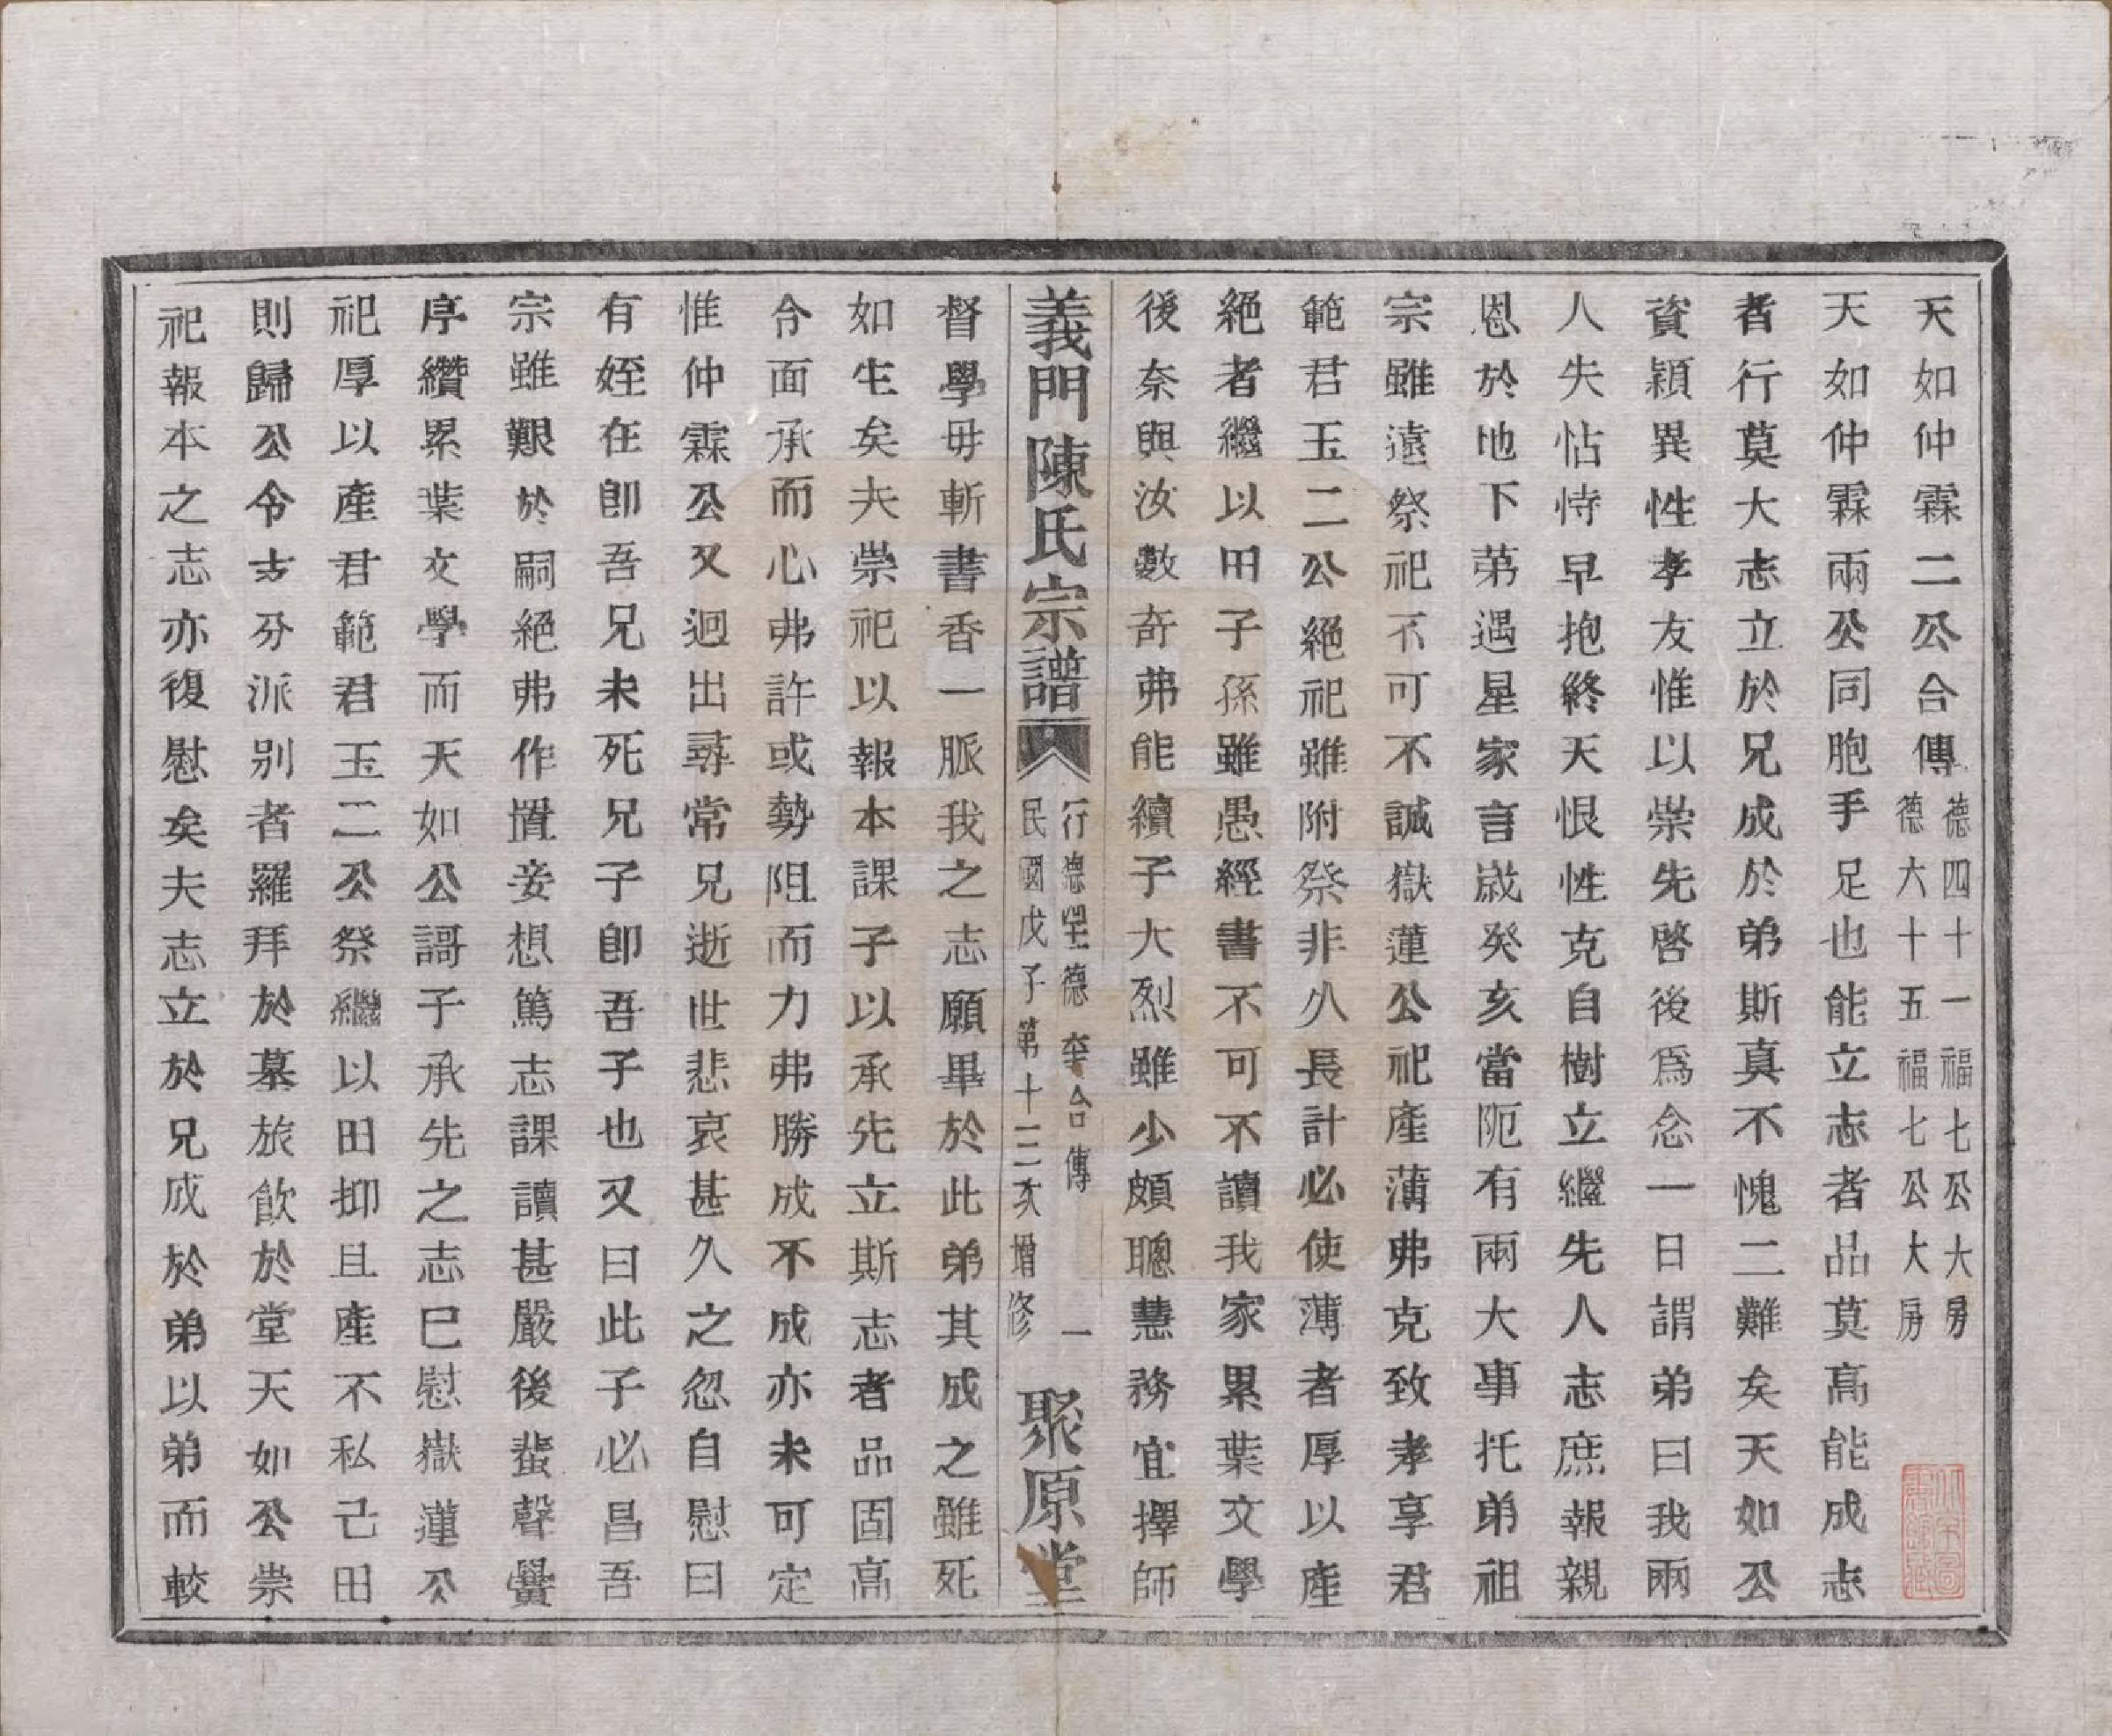 天如仲霖二公合傳 德四十一福七公大房 德六十五福七公大房
天如仲霖兩公同胞手足也能立志者品莫高能成志
者行莫大志立於兄成於弟斯真不愧二難矣天如公
資穎異性孝友惟以崇先啓後爲念一日謂弟曰我兩
人失怙恃早抱終天恨性克自樹立繼先人志庶報親
恩於地下苐遇星家言歲癸亥當阨有兩大事托弟祖
宗雖遠祭祀不可不誠嶽蓮公祀產薄弗克致孝享君
範君玉二公絕祀雖附祭非久長計必使薄者厚以產
絕者繼以田子孫雖愚經書不可不讀我家累葉文學
後奈與汝數奇弗能續子大烈雖少頗聰慧務宜擇師
義門陳氏宗譜
行德四一德六五合傳 一
民國戊子第十二次增修
聚原堂
督學毋斬書香一脈我之志願畢於此弟其成之雖死
如生矣夫崇祀以報本課子以承先立斯志者品固高
令面承而心弗許或勢阻而力弗勝成不成亦未可定
惟仲霖公又迥出尋常兄逝世悲哀甚久之忽自慰曰
有姪在卽吾兄未死兄子卽吾子也又曰此子必昌吾
宗雖艱於嗣絕弗作置妾想篤志課讀甚嚴後蜚聲黌
序纘累葉文學而天如公謌子承先之志已慰嶽蓮公
祀厚以產君範君玉二公祭繼以田抑且產不私己田
則歸公令古分派别者羅拜於墓旅飮於堂天如公崇
祀報本之志亦復慰矣夫志立於兄成於弟以弟而較